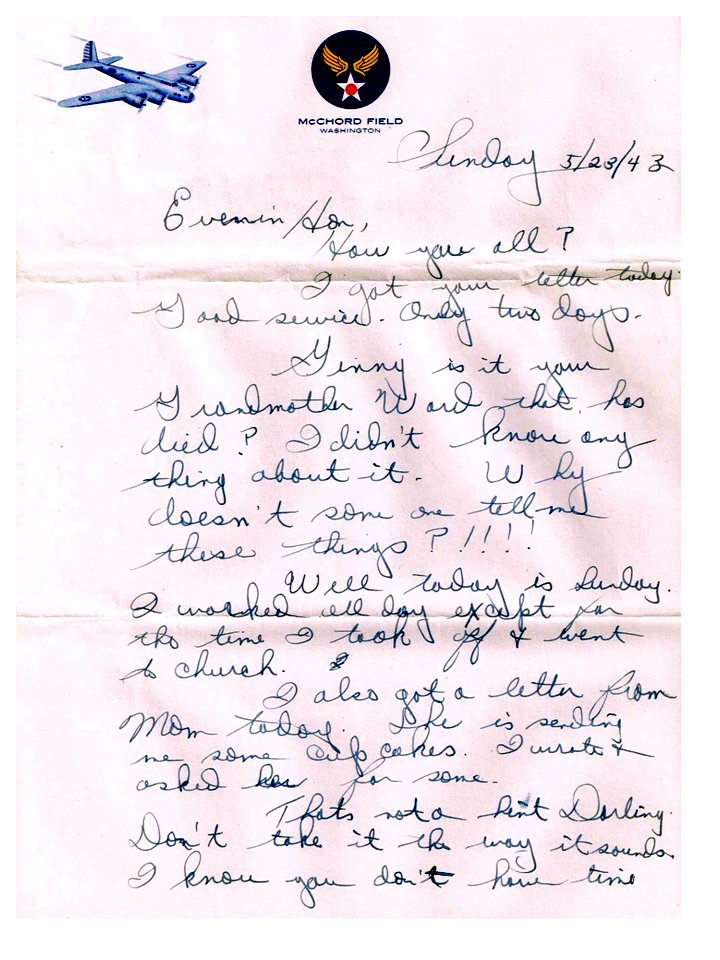 McCHORD FIELD
WASHINGTON
Sunday 5/23/43
Evenin Hon,
How you all?
I got your letter today.
Good service. Only two days.
Ginny is it your
Grandmother Word that has
died? I didn't know any
thing about it. Why
doesn't some one tell me
these things?!!!!
Well today is Sunday.
I worked all day except for
the time I took off & went
to church.
I also got a letter from
Mom today. She is sending
me some cup cakes. I wrote &
asked her for some.
Thats not a hint Darling.
Don't take it the way it sounds.
I know you don't have time